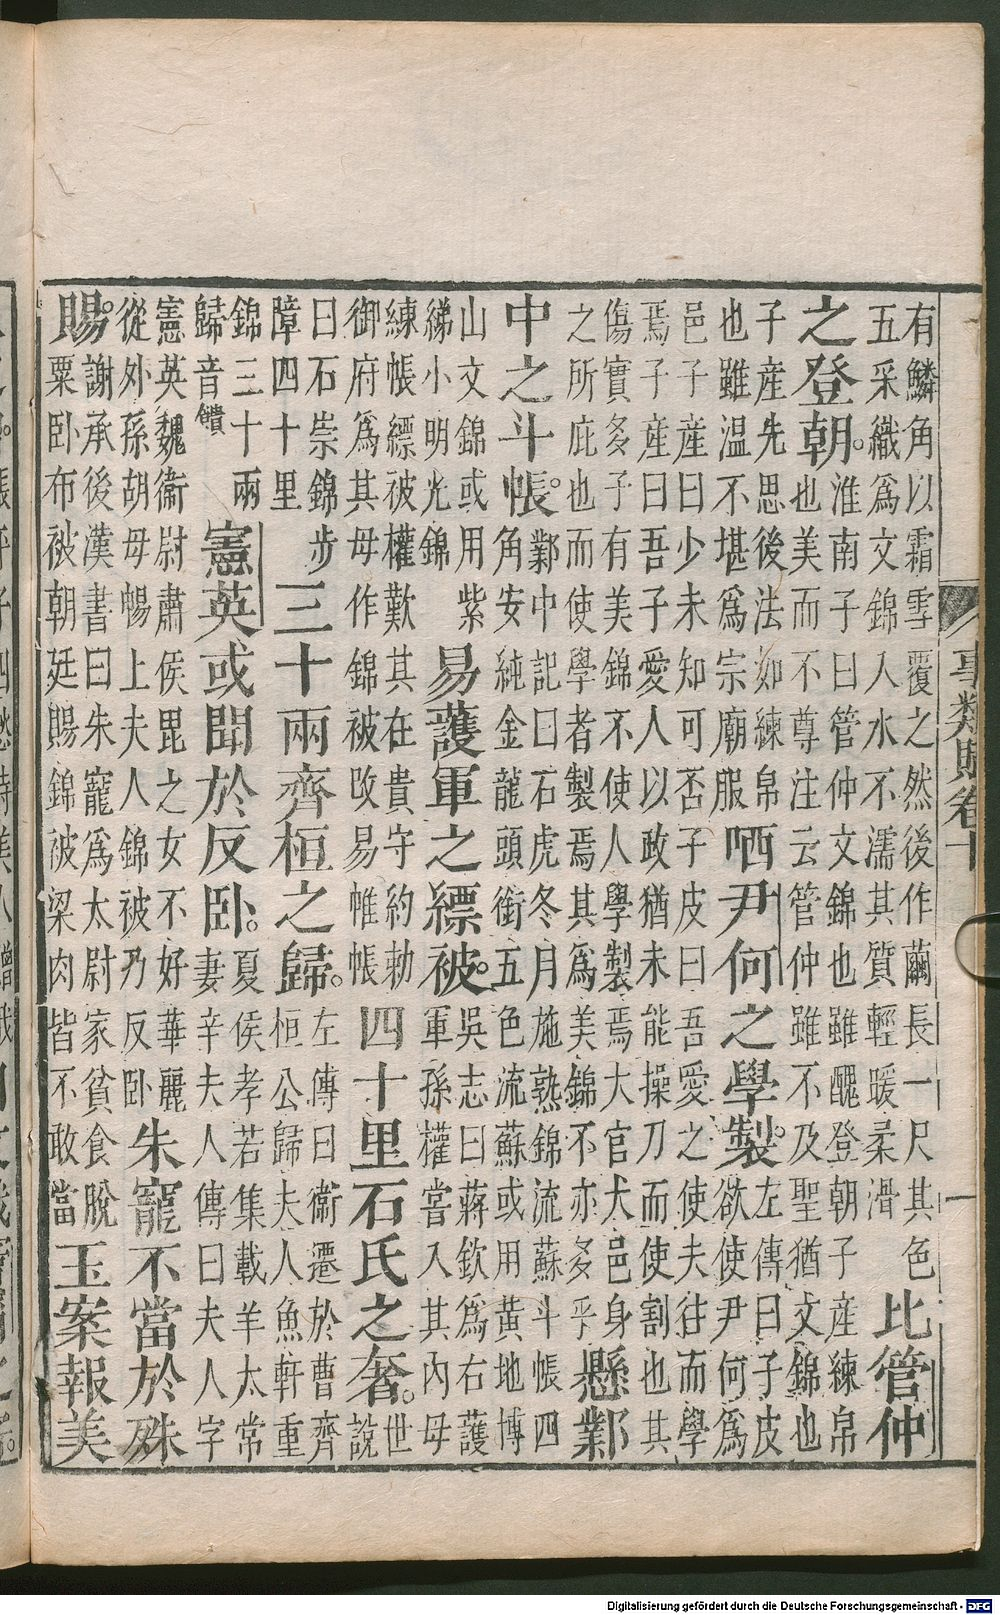 有鱗角以霜雪覆之然後作繭長一尺其色
五采織為文錦入水不濡其質輕暖柔滑
比管仲
之登朝。
淮南子曰管仲文錦也雖醜登朝子產練帛
也美而不尊注云管仲雖不及聖猶文錦也
子產先思後法如練帛
也雖温不堪為宗廟服
哂尹何之學製。
左傳曰子皮
欲使尹何為
邑子產曰少未知可否子皮曰吾愛之使夫往而學
焉子產曰吾子愛人以政猶未能操刀而使割也其
傷實多子有美錦不使人學製焉大官大邑身
之所庇也而使學者製焉其為美錦不亦多乎
懸鄴
中之斗帳。
鄴中記曰石虎冬月施熟錦流蘇斗帳四
角安純金龍頭銜五色流蘇或用黃地博
山文錦或用紫
綈小明光錦
易護軍之縹被。
吳志曰蔣欽為右護
軍孫權嘗入其內母
練帳縹被權歎其在貴守約勅
御府為其母作錦被攺易帷帳
四十里石氏之奢。
世
說
曰石崇錦步
障四十里
三十兩齊桓之歸。
左傳曰衛遷於曹齊
桓公歸夫人魚軒重
錦三十兩
歸音饋
憲英或聞於反卧。
夏侯孝若集載羊太常
妻辛夫人傳曰夫人字
憲英魏衞尉肅侯毘之女不好華麗
從外孫胡毋暢上夫人錦被乃反卧
朱寵不當於殊
賜。
謝承後漢書曰朱寵為太尉家貧食脫
粟卧布被朝廷賜錦被梁肉皆不敢當
玉案報美
事類賦卷十
一
Digitalisierung gefördert durch die Deutsche Forschungsgemeinschaft - DFG